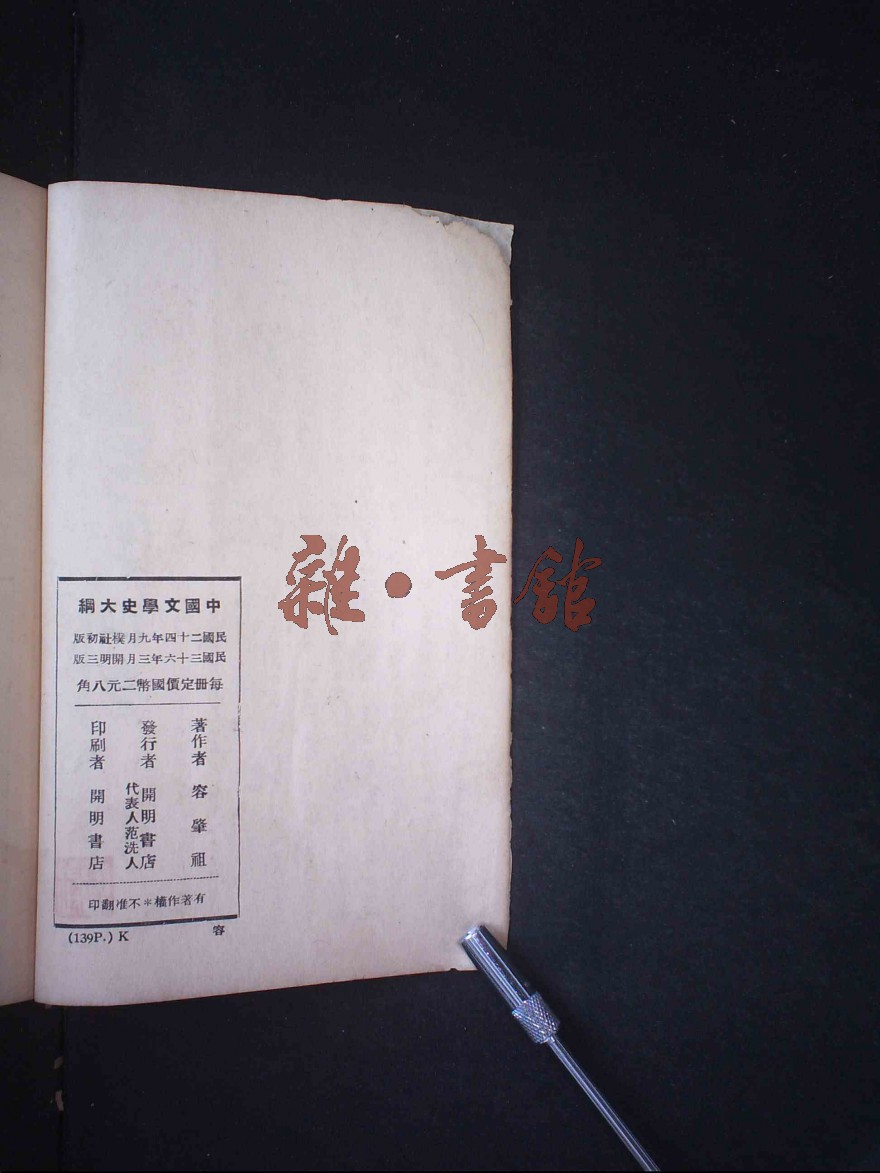 中國文學史大綱
民國二十四年九月樸社初版
民國三十六年三月開明三版
每冊定價國幣二元八角
著作者 容肇祖
發行者 開明書店
代表人范洗人
印刷者 開明書店
有著作權＊不准翻印
(139P.) K 容
雜·書館